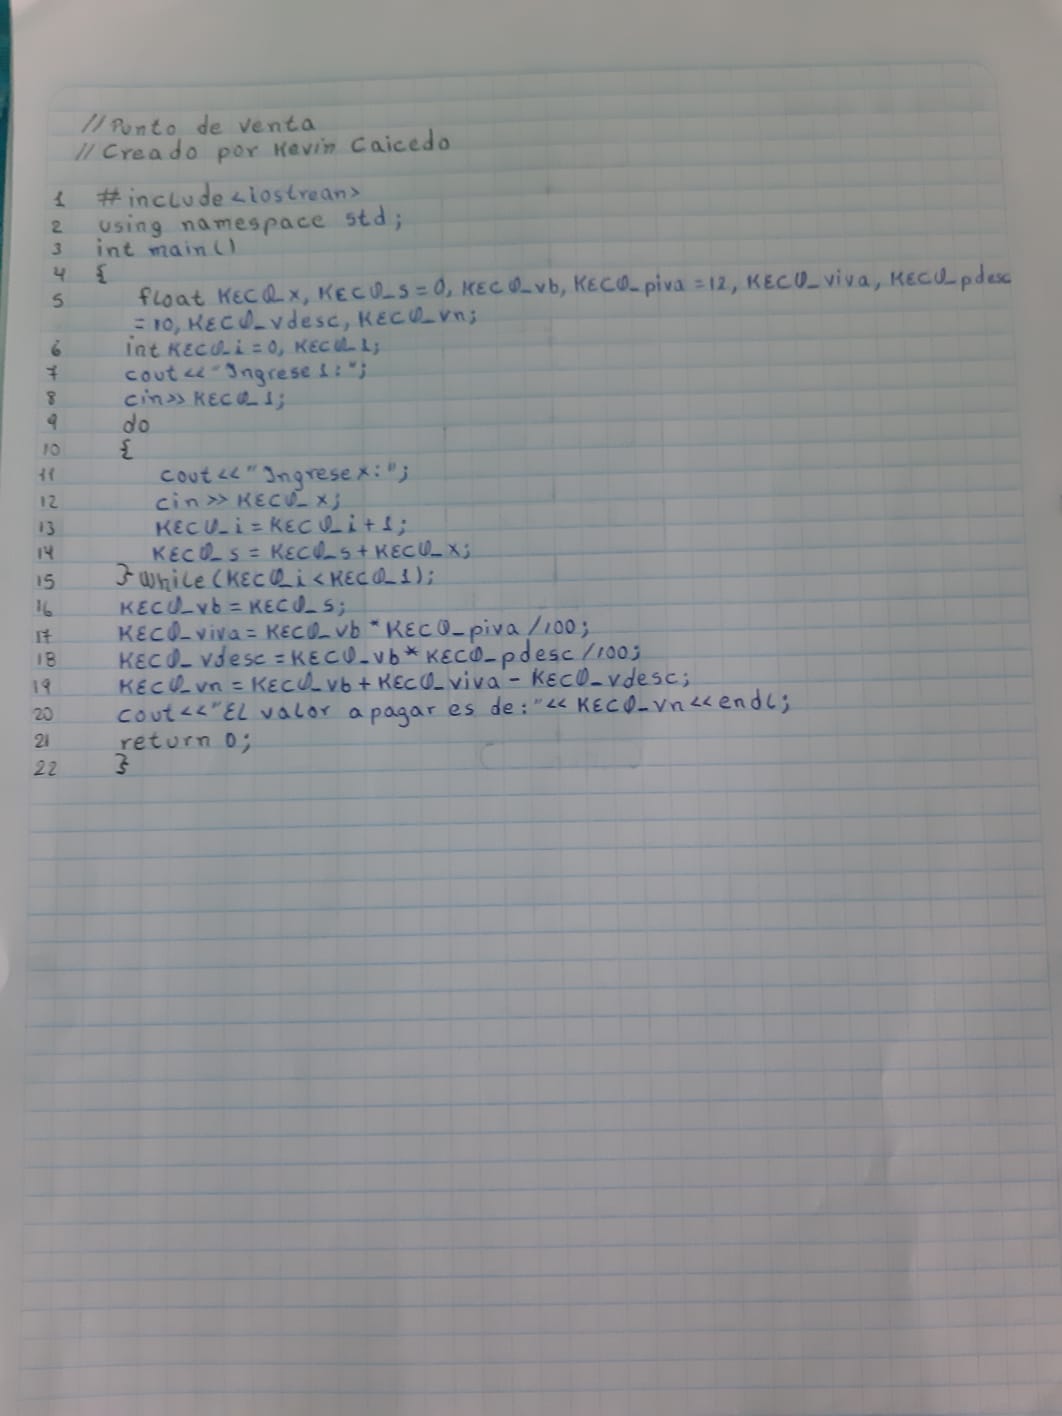 //Punto de venta
//Creado por Kevin Caicedo
1 #include<iostrean>
2 using namespace std;
3 int main()
4 {
5 float KECQ_x, KECQ_s=0, KECQ_vb, KECQ_piva=12, KECQ_viva, KECQ_pdesc
=10, KECQ_vdesc, KECQ_vn;
6 int KECQ_i=0, KECQ_1;
7 cout<<"Ingrese 1:";
8 cin>>KECQ_1;
9 do
10 {
11 cout<<"Ingrese x:";
12 cin>>KECQ_x;
13 KECQ_i=KECQ_i+1;
14 KECQ_s=KECQ_s+KECQ_x;
15 }while(KECQ_i<KECQ_1);
16 KECQ_vb=KECQ_s;
17 KECQ_viva=KECQ_vb*KECQ_piva/100;
18 KECQ_vdesc=KECQ_vb*KECQ_pdesc/100;
19 KECQ_vn=KECQ_vb+KECQ_viva-KECQ_vdesc;
20 cout<<"El valor a pagar es de:"<<KECQ_vn<<endl;
21 return 0;
22 }